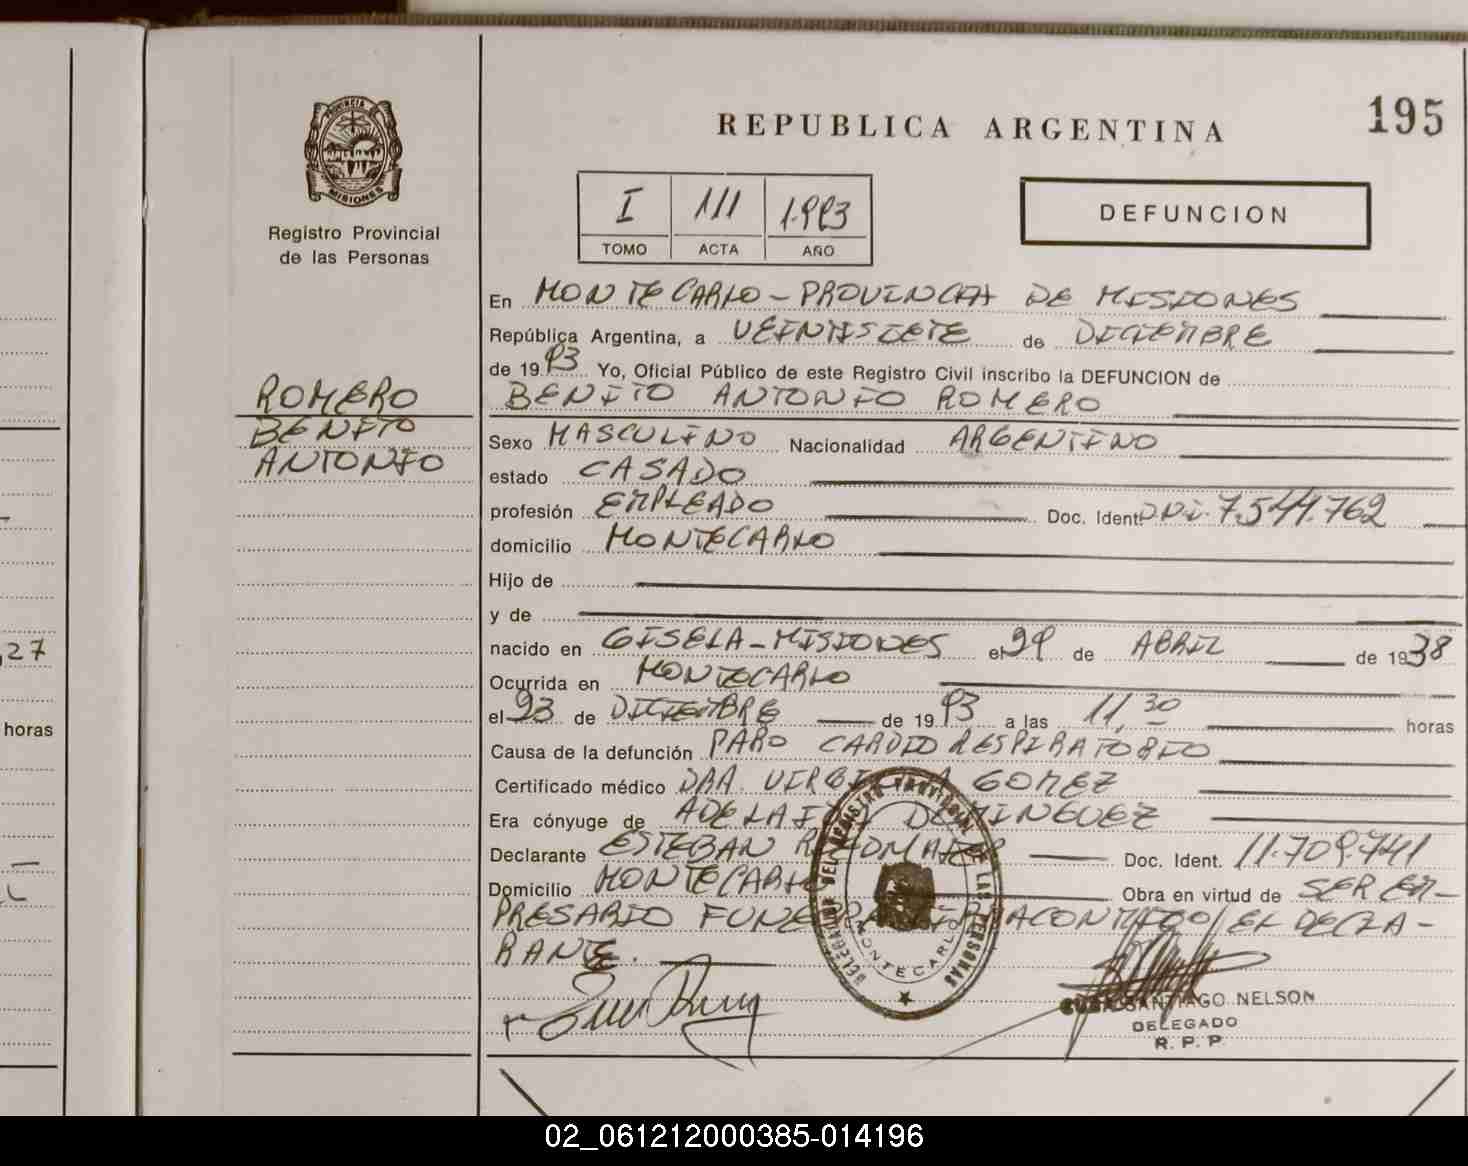 195
REPUBLICA ARGENTINA
PROVINCIA DE
MISIONES
Registro Provincial
de las Personas
I 111 1.993
TOMO ACTA AÑO
DEFUNCION
En MONTECARLO - PROVINCIA DE MISIONES
República Argentina, a VEINTISIETE de DICIEMBRE
de 19 93 Yo, Oficial Público de este Registro Civil inscribo la DEFUNCION de
BENITO ANTONIO ROMERO
ROMERO
BENITO
ANTONIO
Sexo MASCULINO Nacionalidad ARGENTINO
estado CASADO
profesión EMPLEADO Doc. Ident. D.N.I. 7.544.762
domicilio MONTECARLO
Hijo de
y de
nacido en GISELA - MISIONES el 29 de ABRIL de 19 38
Ocurrida en MONTECARLO
el 23 de DICIEMBRE de 19 93 a las 11,30 horas
Causa de la defunción PARO CARDIO RESPIRATORIO
Certificado médico DRA. VIRGINIA GOMEZ
Era cónyuge de ADELAIDA DOMINGUEZ
Declarante ESTEBAN Doc. Ident. 11.709.741
Domicilio MONTECARLO Obra en virtud de SER EM-
PRESARIO FUNEBRE. FIRMA CONMIGO EL DECLA-
RANTE.
DELEGACION DEL REGISTRO PROVINCIAL DE LAS PERSONAS
MONTECARLO
SANTIAGO NELSON
DELEGADO
R. P. P.
27
horas
02_061212000385-014196